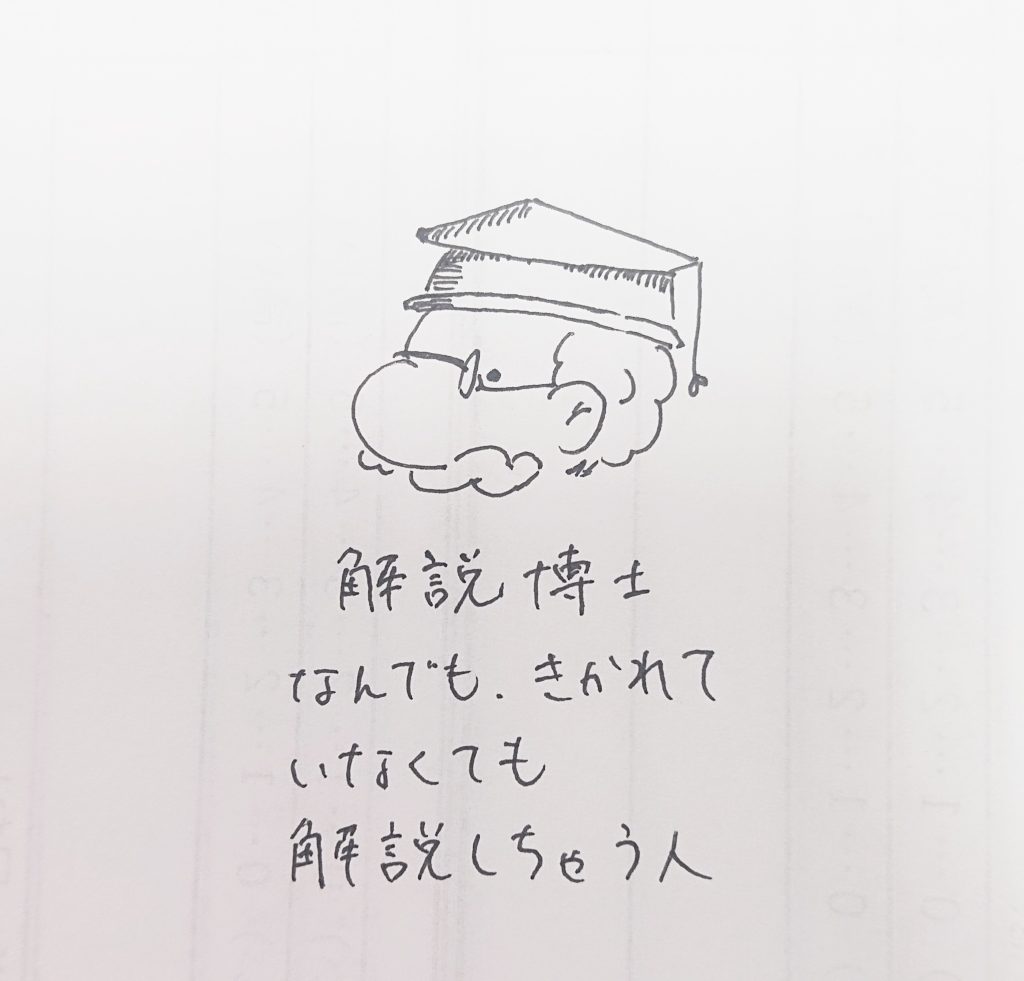 解説博士
なんでも、きかれて
いなくても
解説しちゃう人